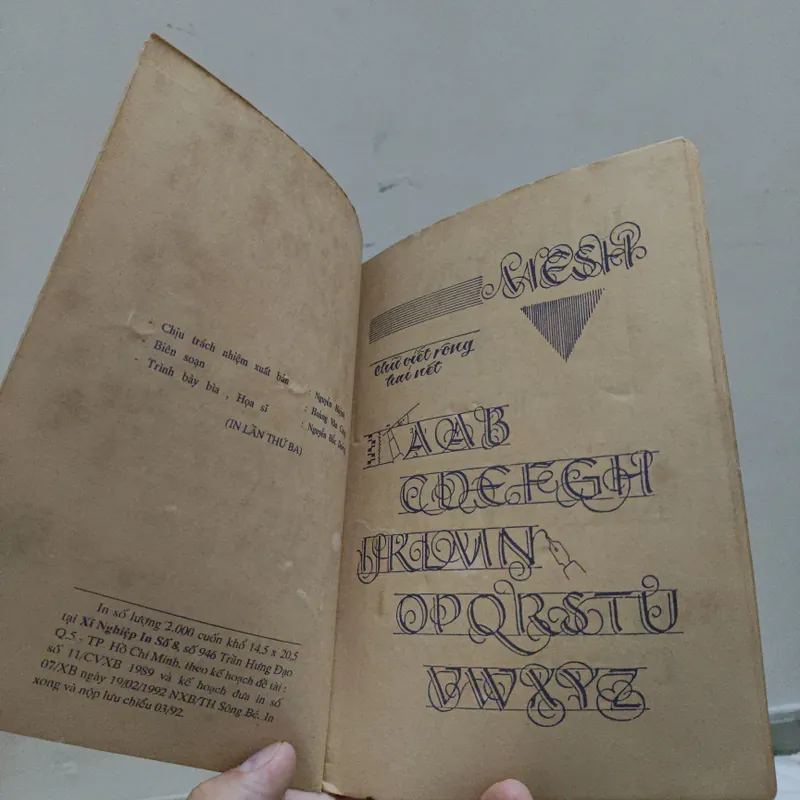 - Chịu trách nhiệm xuất bản : Nguyễn
- Biên soạn : Hoàng Văn
- Trình bày bìa , Họa sĩ : Nguyễn Đắc
(IN LẦN THỨ BA)
In số lượng 2.000 cuốn khổ 14,5 x 20,5
tại Xí Nghiệp In Số 8, số 946 Trần Hưng Đạo
Q.5 - TP. Hồ Chí Minh, theo kế hoạch đề tài :
số 11/CVXB 1989 và kế hoạch đưa in số
07/XB ngày 19/02/1992 NXB/TH Sông Bé. In
xong và nộp lưu chiểu 03/92.
MESH
chữ viết rông
hai nét
AAB
CDEFGH
IJKLMN
OPQRSTU
VWXYZ